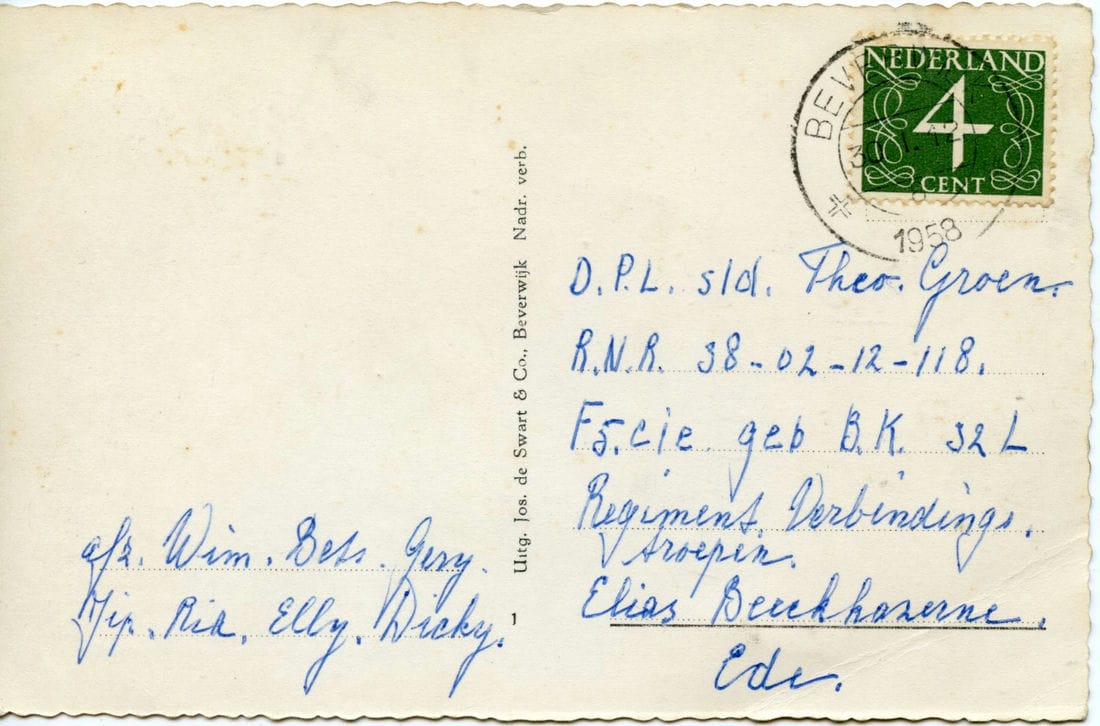 NEDERLAND
4
CENT
BEVERWIJK
30.1.12
1958
Uitg. Jos. de Swart & Co., Beverwijk Nadr. verb.
1
D.P.L. sld. Theo. Groen.
R.N.R. 38-02-12-118.
F5.cie geb B.K. 32 L
Regiment. Verbindings.
troepen.
Elias Beeckkazerne.
Ede.
afz. Wim. Bets. Gery.
Jip. Ria. Elly. Dicky.